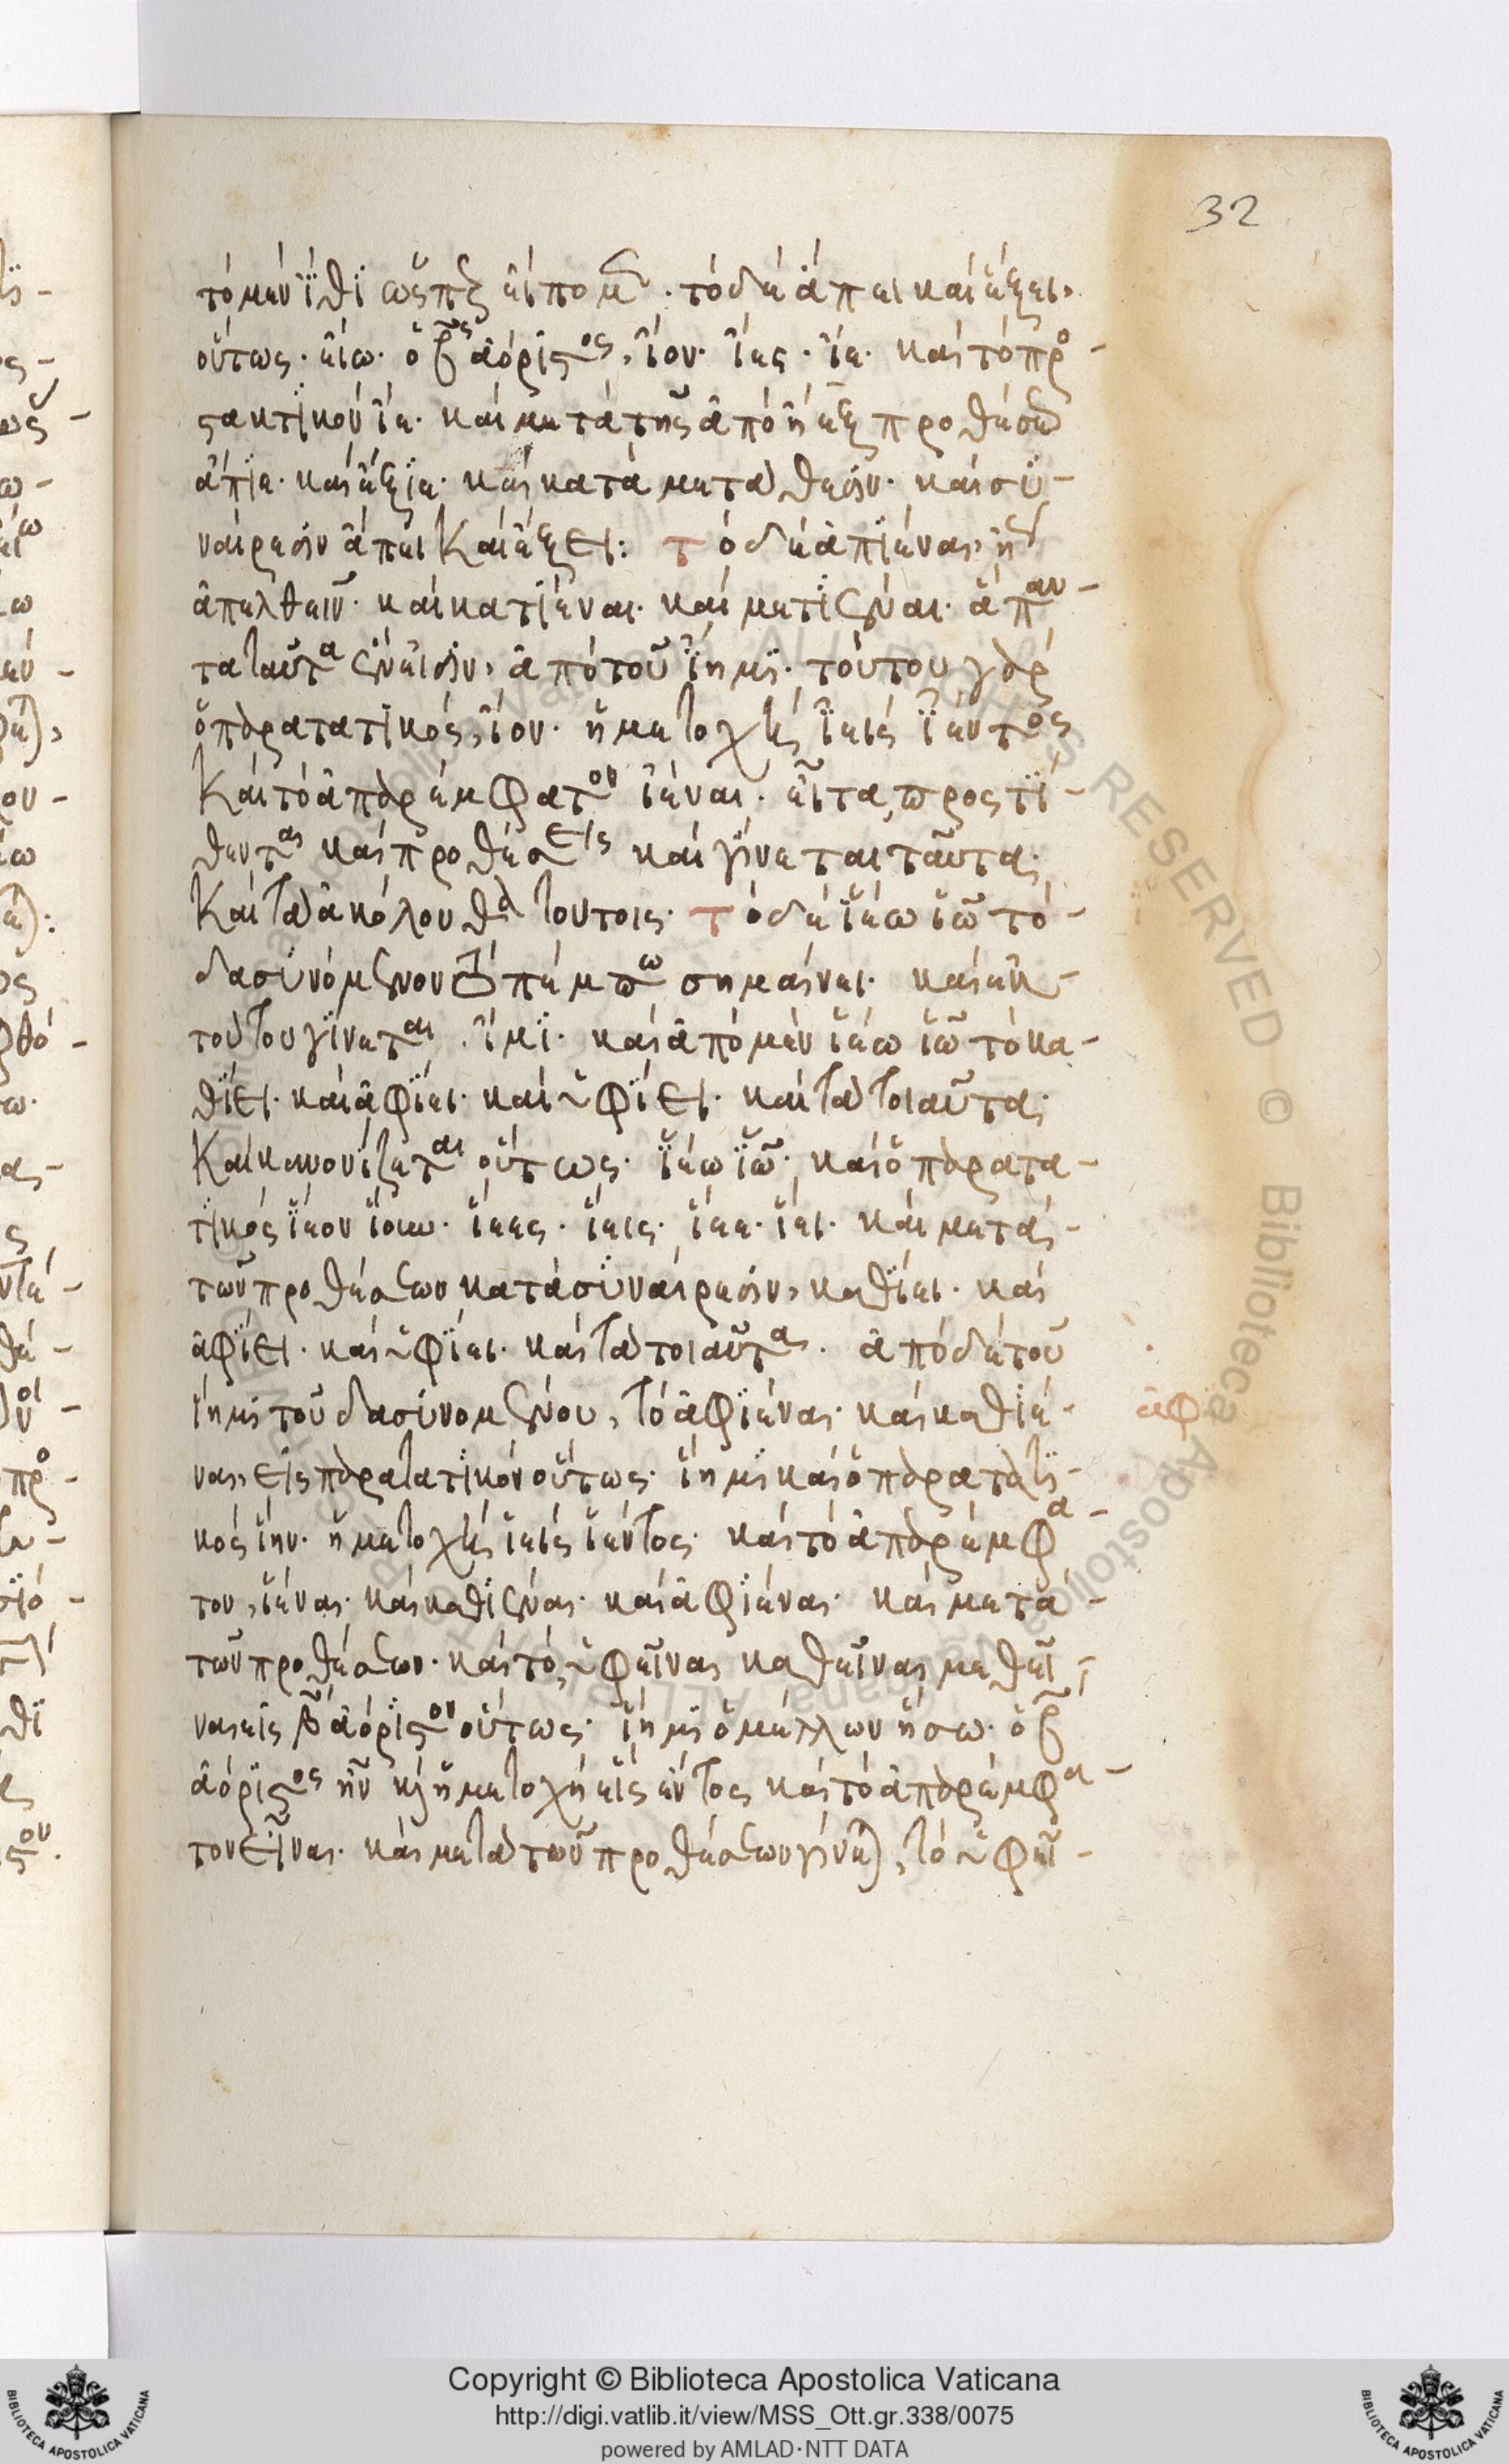 32
τὸ μὲν ἴθι ὥσπερ εἴπομεν. τὸ δὲ ἄπει καὶ ἔξει,
οὕτως. εἴω. ὁ βος ἀόριστος, ἴον. ἴες. ἴε. καὶ τὸ προ-
στακτικὸν ἴε. καὶ μετὰ τῆς ἀπὸ ἢ ἐξ προθέσεως
ἄπιε. καὶ ἔξιε. καὶ κατὰ μετάθεσιν. καὶ συ-
ναίρεσιν ἄπει καὶ ἔξει: τὸ δὲ ἀπιέναι, ἢ
ἀπελθεῖν. καὶ κατιέναι. καὶ μετιέναι. ἅπαν-
τα ταῦτα ἔνεισιν, ἀπὸ τοῦ ἴημι. τούτου γὰρ
ὁ παρατατικός, ἴον. ἡ μετοχὴ ἰεὶς ἰέντος
καὶ τὸ ἀπαρέμφατον ἰέναι. εἶτα προστί-
θενται καὶ προθέσεις καὶ γίνεται ταῦτα.
καὶ τὰ ἀκόλουθα τούτοις. τὸ δὲ ἱέω ἱῶ τὸ
δασυνόμενον τὸ πέμπω σημαίνει. καὶ ἐκ
τούτου γίνεται. ἵμι. καὶ ἀπὸ μὲν ἱέω ἱῶ τὸ κα-
θίει. καὶ ἀφίει. καὶ ὑφίει. καὶ τὰ τοιαῦτα.
καὶ κανονίζεται οὕτως. ἱέω ἱῶ. καὶ ὁ παρατα-
τικὸς ἵεον ἵουν. ἵεες. ἵεις. ἵεε. ἵει. καὶ μετὰ
τῶν προθέσεων κατὰ συναίρεσιν, καθίει. καὶ
ἀφίει. καὶ ὑφίει. καὶ τὰ τοιαῦτα. ἀπὸ δὲ τοῦ
ἵημι τοῦ δασυνομένου, τὸ ἀφιέναι. καὶ καθιέ-
ἀφ
ναι, εἰς παρατατικὸν οὕτως. ἵημι καὶ ὁ παρατατι-
κὸς ἵην. ἡ μετοχὴ ἱεὶς ἱέντος. καὶ τὸ ἀπαρέμφα-
τον, ἱέναι. καὶ καθιέναι. καὶ ἀφιέναι. καὶ μετὰ
τῶν προθέσεων. καὶ τὸ ὑφεῖναι καθεῖναι μεθεῖ-
ναι εἰς β ἀόριστον οὕτως. ἵημι ὁ μέλλων ἥσω. ὁ β
ἀόριστος ἣν καὶ ἡ μετοχὴ εἵς ἕντος καὶ τὸ ἀπαρέμφα-
τον εἷναι. καὶ μετὰ τῶν προθέσεων γίνεται, τὸ ὑφεῖ-
Copyright © Biblioteca Apostolica Vaticana
http://digi.vatlib.it/view/MSS_Ott.gr.338/0075
powered by AMLAD·NTT DATA